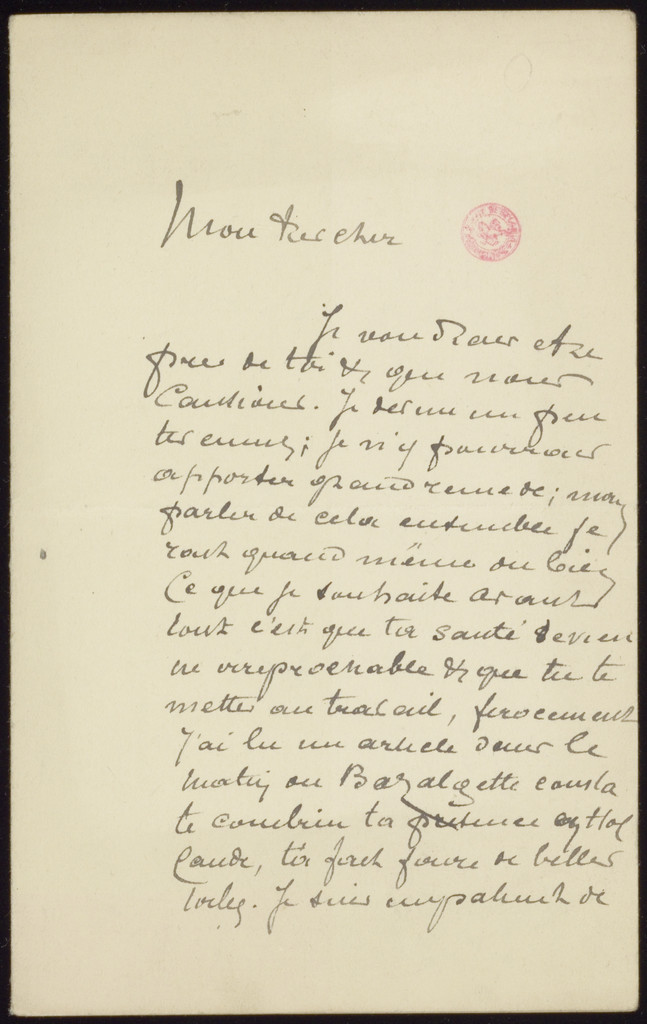 Mon très cher
Je voudrais etre
près de toi & que nous
causions. Je devine un peu
tes ennuis; je n'y pourrais
apporter grand remede; mais
parler de cela ensemble fe
rait quand même du bien
Ce que je souhaite avant
tout c'est que ta santé devien
ne irreprochable & que tu te
mettes au travail, ferocement
J'ai lu un article dans le
Matin ou Bazalgette consta
te combien ta présence en Hol
lande, t'a fait faire de belles
toiles. Je suis impatient de